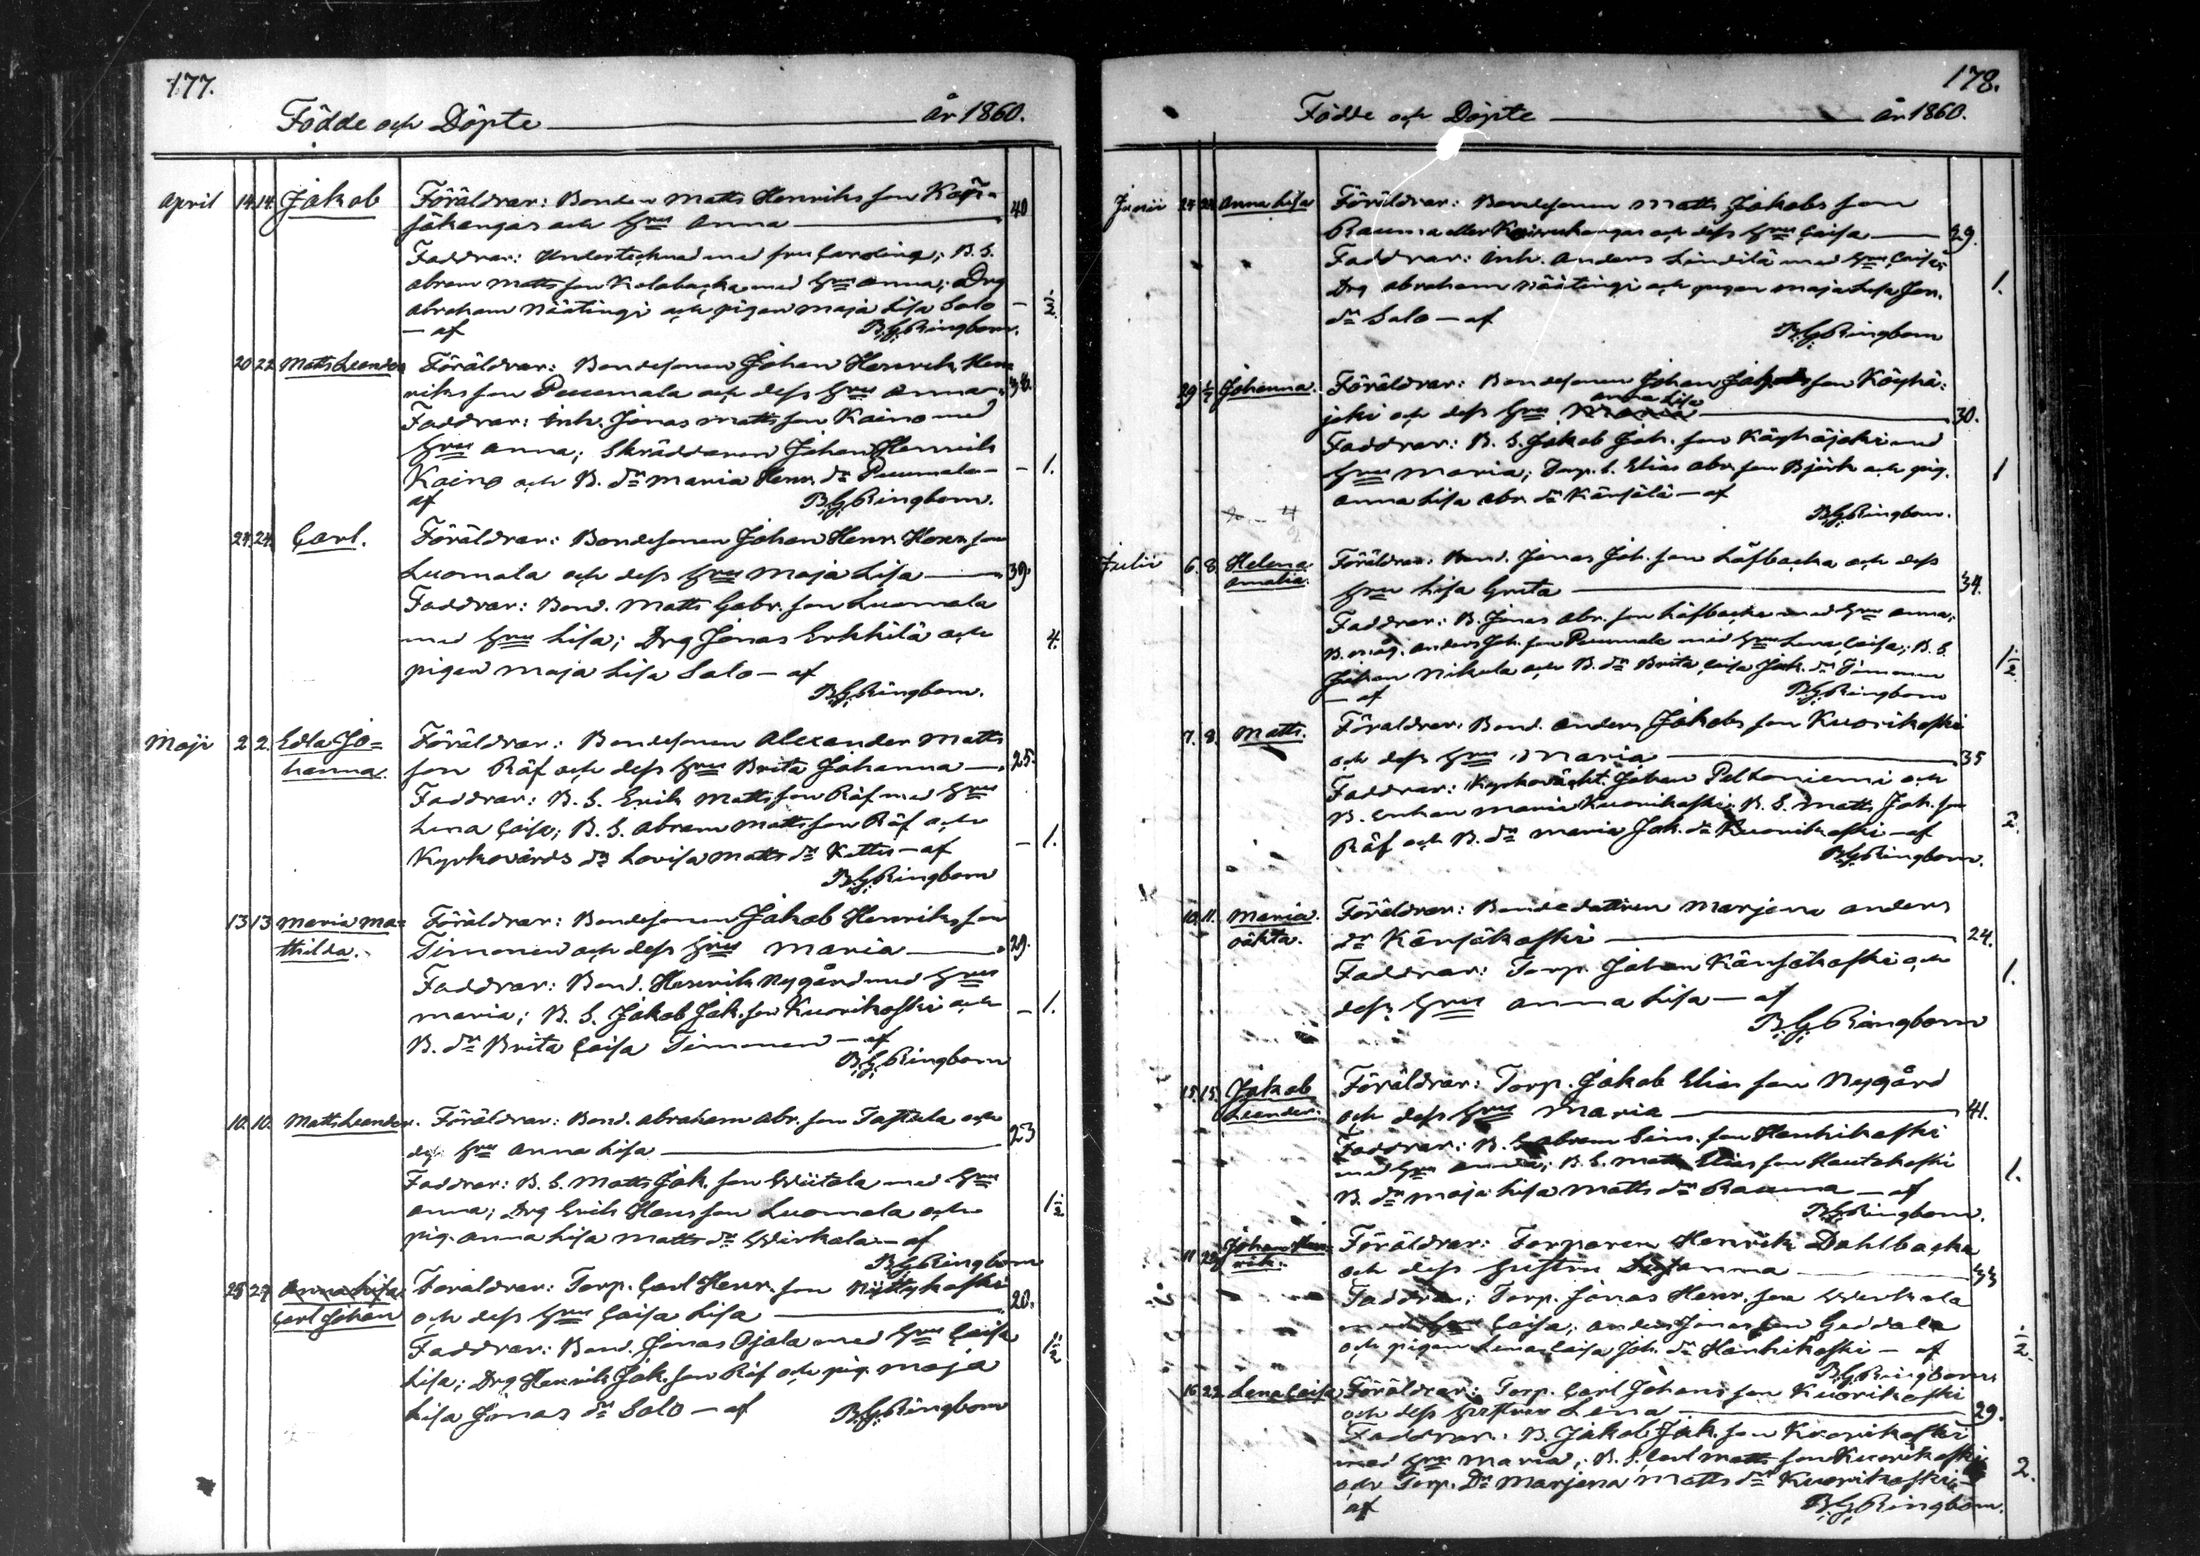 177.
Födde och Döpte år 1860.
April 14. 14. Jakob Föräldrar: Bonden Matts Henriks son
och hrus Anna 40
Faddrar: Undertecknad med fru Carolina; B. S.
Abram Matts son Kolabacka med hrus Anna; Drg
Abraham Näätingi och pigan Maja Lisa Salo — 1/2
— af B.G. Ringbom.
20 22 Matts Leander Föräldrar: Bondesonen Johan Henrik Hen
riks son Puumala och dess hrus Anna
Faddrar: Inh. Jonas Matts son Kaino med
hrus Anna; Skräddaren Johan Henrik
Kaino och B. dr Maria Henr. dr Puumala — 1.
af B.G. Ringbom.
24. 24. Carl. Föräldrar: Bondesonen Johan Henr. Henr. son
Luomala och dess hrus Maja Lisa 39.
Faddrar: Bond. Matts Gabr. son Luomala
med hrus Lisa; Drg Jonas Erkkilä och 4.
pigan Maja Lisa Salo — af
B.G. Ringbom.
Maji 2 2. Edla Jo=
hanna. Föräldrar: Bondesonen Alexander Matts
son Räf och dess hrus Brita Johanna — 25.
Faddrar: B. S. Erik Matts son Räf med hrus
Lena Caisa; B. S. Abram Matts son Räf och
Kyrkovärds dr Lovisa Matts dr Kattus — af — 1.
B.G. Ringbom
13 13 Maria Ma=
thilda. Föräldrar: Bondesonen Jakob Henriks son
Timonen och dess hrus Maria 29.
Faddrar: Bond. Henrik Nygård med hrus
Maria; B. S. Jakob Jak. son Kuorikoski och — 1.
B. dr Brita Caisa Timonen — af
B.G. Ringbom
10. 10. Matts Leander. Föräldrar: Bond. Abraham Abr. son Tastula och
dess hrus Anna Lisa 23
Faddrar: B. S. Matts Jak. son Wiitala med hrus
Anna; Drg Erik Hans son Luomala och 1 1/2
pig. Anna Lisa Matts dr Wirkala — af
B.G. Ringbom
25 27 Anna Lisa
Carl Johan Föräldrar: Torp. Carl Henr. son Niittykoski
och dess hrus Caisa Lisa 20.
Faddrar: Bond. Jonas Ojala med hrus Caisa 1 1/2
Lisa; Drg Henrik Jak. son Räf och pig. Maja
Lisa Jonas dr Salo — af B.G. Ringbom
178.
Födde och Döpte år 1860.
Junii 24 24 Anna Lisa Föräldrar: Bondesonen Matts Jakobs son
Rauma eller och dess hrus Caisa 29.
Faddrar: Inh. Anders Lindilä med hrus Caisa;
Drg Abraham Näätingi och pigan Maja Lisa Jon. 1.
dr Salo — af
B.G. Ringbom
29 1/7 Johanna. Föräldrar: Bondesonen Johan Jakobs son Köyhä=
Anna Lisa
joki och dess hrus Maria 30.
Faddrar: B. S. Jakob Joh. son Köyhäjoki med
hrus Maria; Torp. S. Elias Abr. son Björk och pig. 1
Anna Lisa Abr. dr Känsälä — af
B.G. Ringbom.
Julii 6. 8. Helena
Amalia. Föräldrar: Bond. Jonas Joh. son Löfbacka och dess
hrus Lisa Greta 34.
Faddrar: B. Jonas Abr. son Löfbacka med hrus Anna;
B. måg. Anders Joh. son Puumala med hrus Lena Caisa; B. S.
Johan Nikula och B. dr Brita Caisa Jak. dr Timonen 1 1/2
— af B.G. Ringbom
7. 8. Matts. Föräldrar: Bond. Anders Jakobs son Kuorikoski
och dess hrus Maria 35
Faddrar: Kyrkovächt. Johan Peltoniemi och
B. enkan Maria Kuorikoski; B. S. Matts Joh. son
Räf och B. dr Maria Jak. dr Kuorikoski — af 2.
B.G. Ringbom.
10. 11. Maria.
oäkta. Föräldrar: Bondedottren Marjana Anders
dr Känsäkoski 24.
Faddrar: Torp. Johan Känsäkoski och 1.
dess hrus Anna Lisa — af
B.G. Ringbom
15. 15. Jakob
Leander. Föräldrar: Torp. Jakob Elias son Nygård
och dess hrus Maria 41.
Faddrar: B. S. Abram Sim. son Hanhikoski
med hrus Anna; B. S. Matts Elias son Hautakoski 1.
B. dr Maja Lisa Matts dr Rauma — af
B.G. Ringbom.
11 22 Johan Hen=
rik. Föräldrar: Torparen Henrik Dahlbacka
och dess hustru Susanna 33
Faddrar: Torp. Jonas Henr. son Wirkala
med hrus Caisa; Anders Jonas son Geddala
och pigan Lena Caisa Joh. dr Hanhikoski — af 1/2.
B.G. Ringbom.
16. 22. Lena Caisa Föräldrar: Torp. Carl Johans son Kuorikoski
och dess hustru Lena 29.
Faddrar: B. Jakob Jak. son Kuorikoski
med hrus Maria; B. S. Carl Matts son Kuorikoski 2.
och Torp. Dr Marjana Matts dr Kuorikoski —
af B.G. Ringbom.